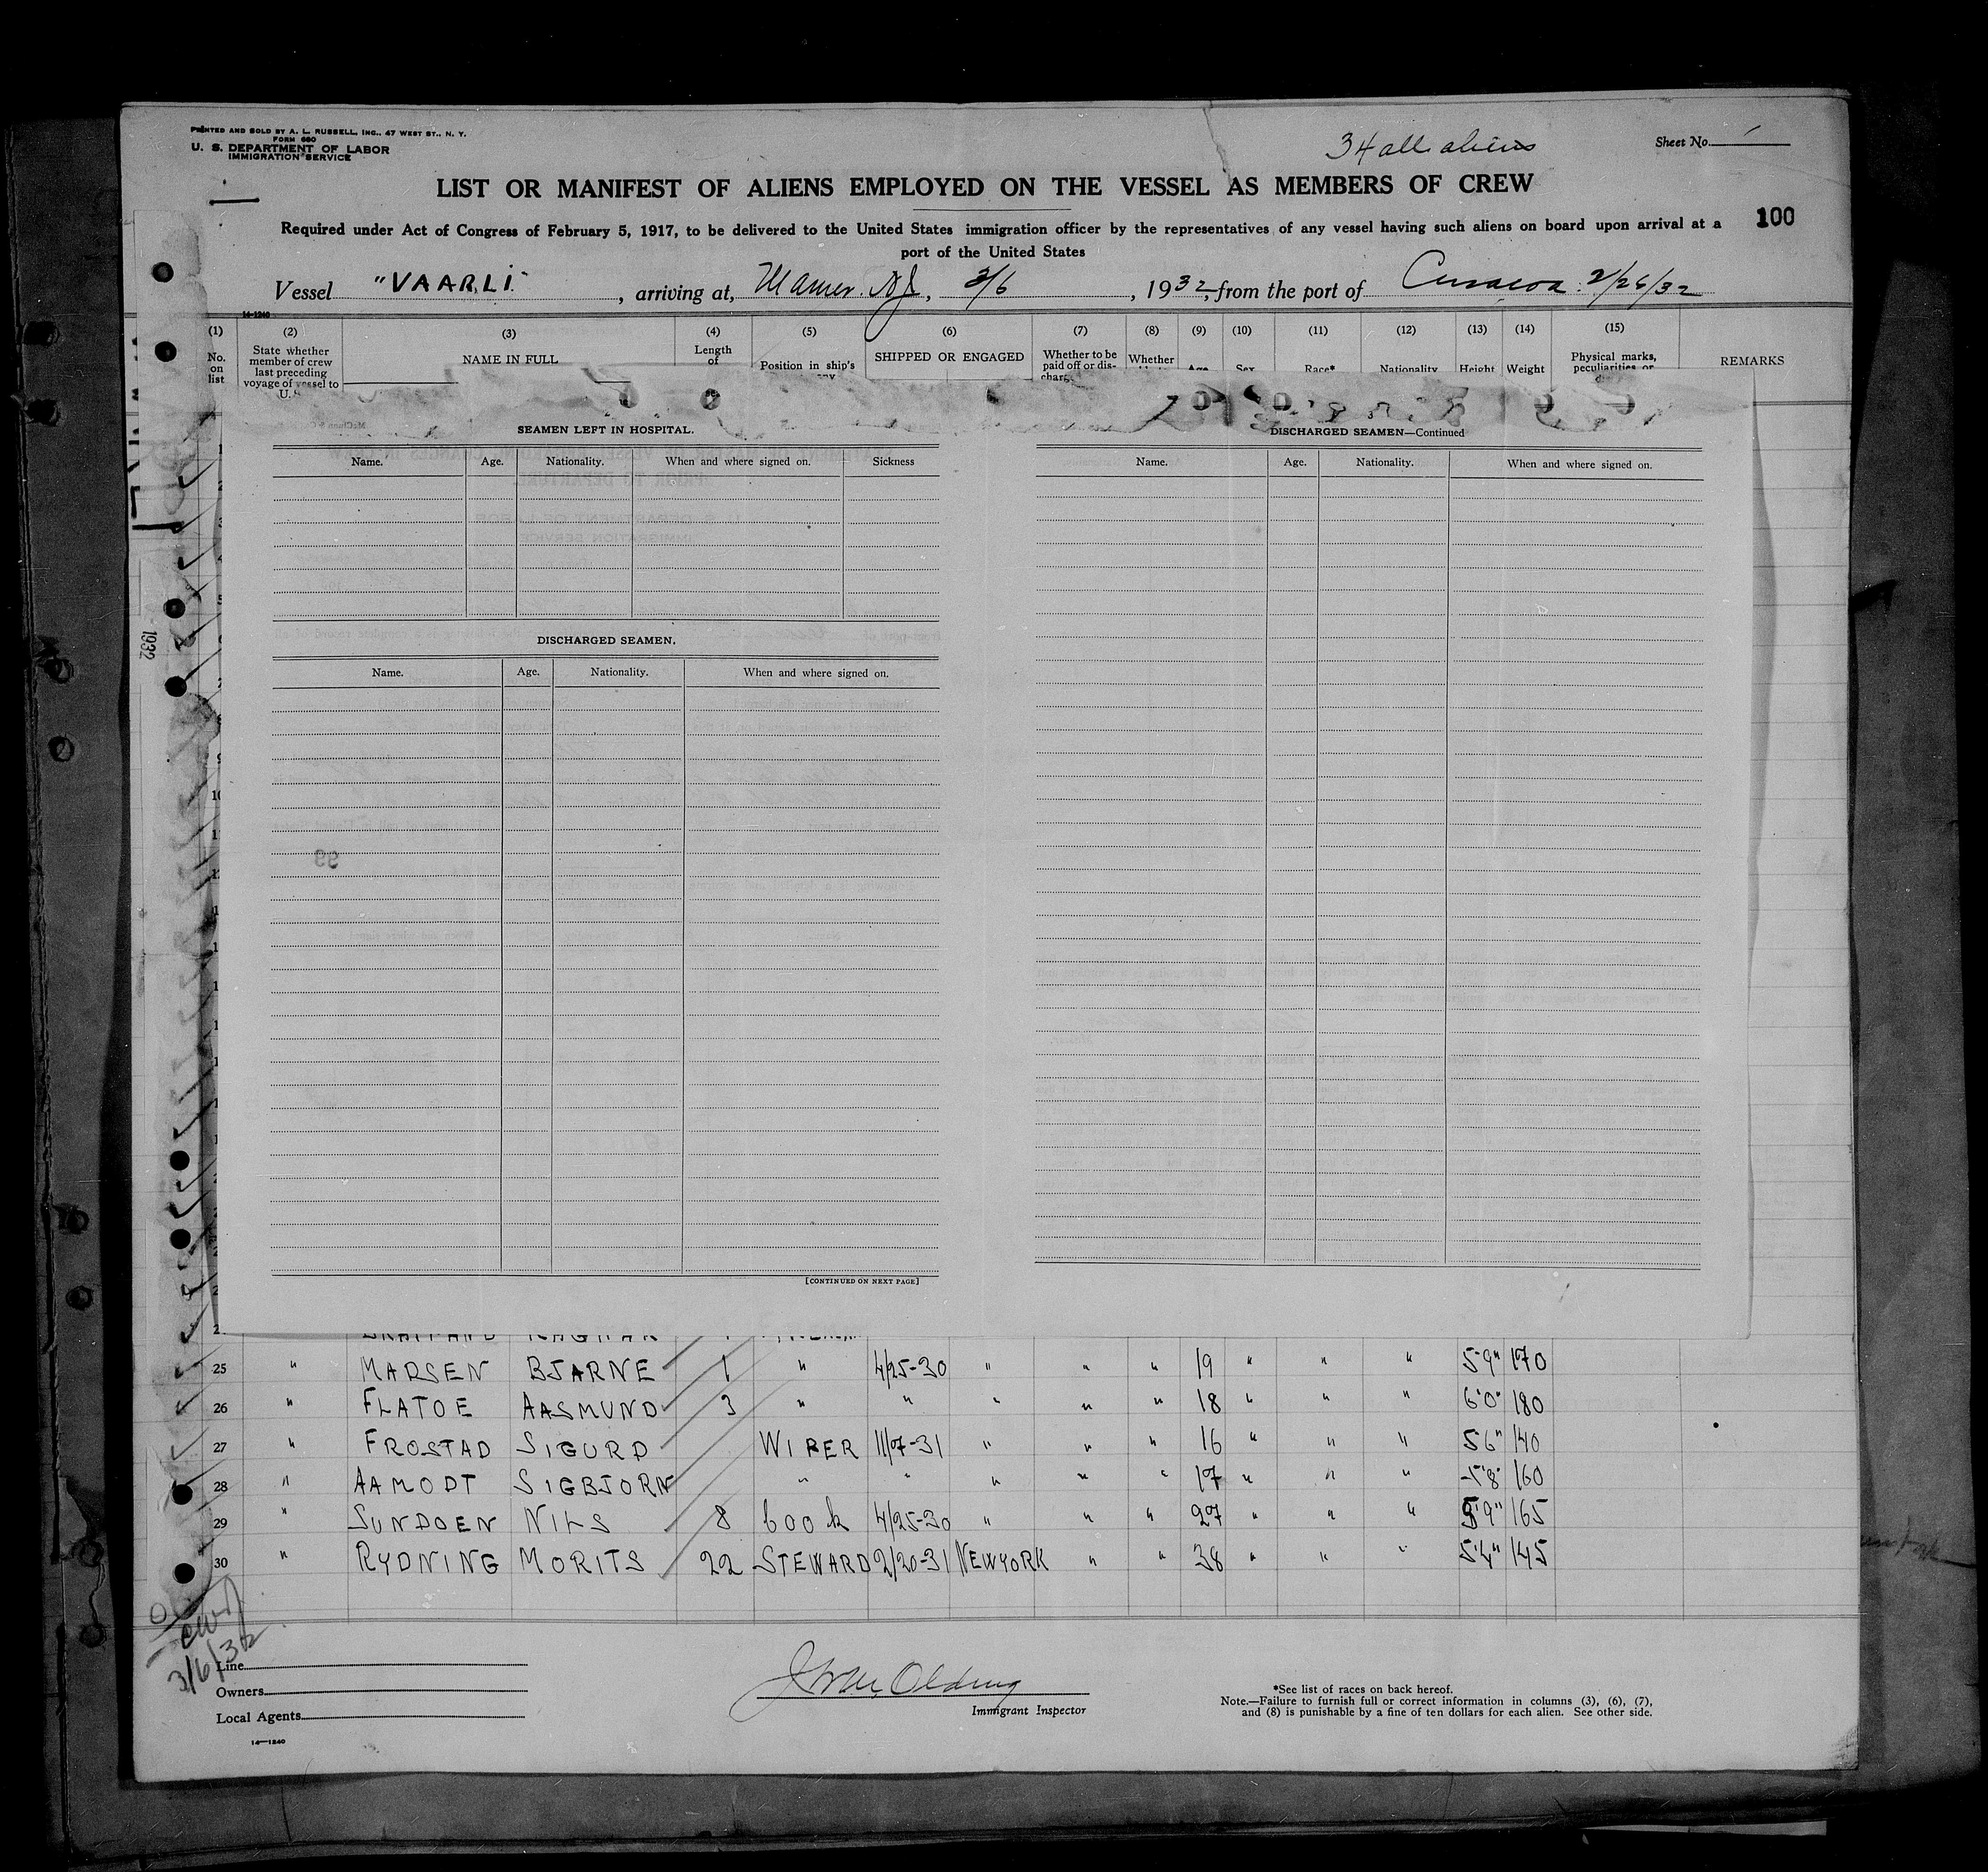 PRINTED AND SOLD BY A. L. RUSSELL, INC., 47 WEST ST., N. Y.
FORM 680
U. S. DEPARTMENT OF LABOR
IMMIGRATION SERVICE
34 all aliens
Sheet No. 1
LIST OR MANIFEST OF ALIENS EMPLOYED ON THE VESSEL AS MEMBERS OF CREW
100
Required under Act of Congress of February 5, 1917, to be delivered to the United States immigration officer by the representatives of any vessel having such aliens on board upon arrival at a
port of the United States
Vessel "VAARLI", arriving at, NJ, 3/6, 1932, from the port of Curacoa 2/26/32
14-1240
(1) (2) (3) (4) (5) (6) (7) (8) (9) (10) (11) (12) (13) (14) (15)
No. on list
State whether member of crew last preceding voyage of vessel to U.S.
NAME IN FULL
Length of
Position in ship's
SHIPPED OR ENGAGED
Whether to be paid off or dis-charg
Whether
Age
Sex
Race*
Nationality
Height
Weight
Physical marks, peculiarities or
REMARKS
SEAMEN LEFT IN HOSPITAL.
Name. Age. Nationality. When and where signed on. Sickness
DISCHARGED SEAMEN.
Name. Age. Nationality. When and where signed on.
[CONTINUED ON NEXT PAGE]
DISCHARGED SEAMEN—Continued
Name. Age. Nationality. When and where signed on.
1932
99
25 " MADSEN BJARNE 1 " 4/25-30 " " " 19 " " " 5'9" 170
26 " FLATOE AASMUND 3 " " " " " 18 " " " 6'0" 180
27 " FROSTAD SIGURD WIPER 11/7-31 " " " 16 " " " 5'6" 140
28 " AAMODT SIGBJORN " " " " " 17 " " " 5'8" 160
29 " SUNDOEN NILS 8 COOK 4/25-30 " " " 27 " " " 5'9" 165
30 " RYDNING MORITS 22 STEWARD 2/20-31 NEWYORK " " 38 " " " 5'4" 145
3/6/32
Line
Owners
Local Agents
14—1240
Immigrant Inspector
*See list of races on back hereof.
Note.—Failure to furnish full or correct information in columns (3), (6), (7),
and (8) is punishable by a fine of ten dollars for each alien. See other side.